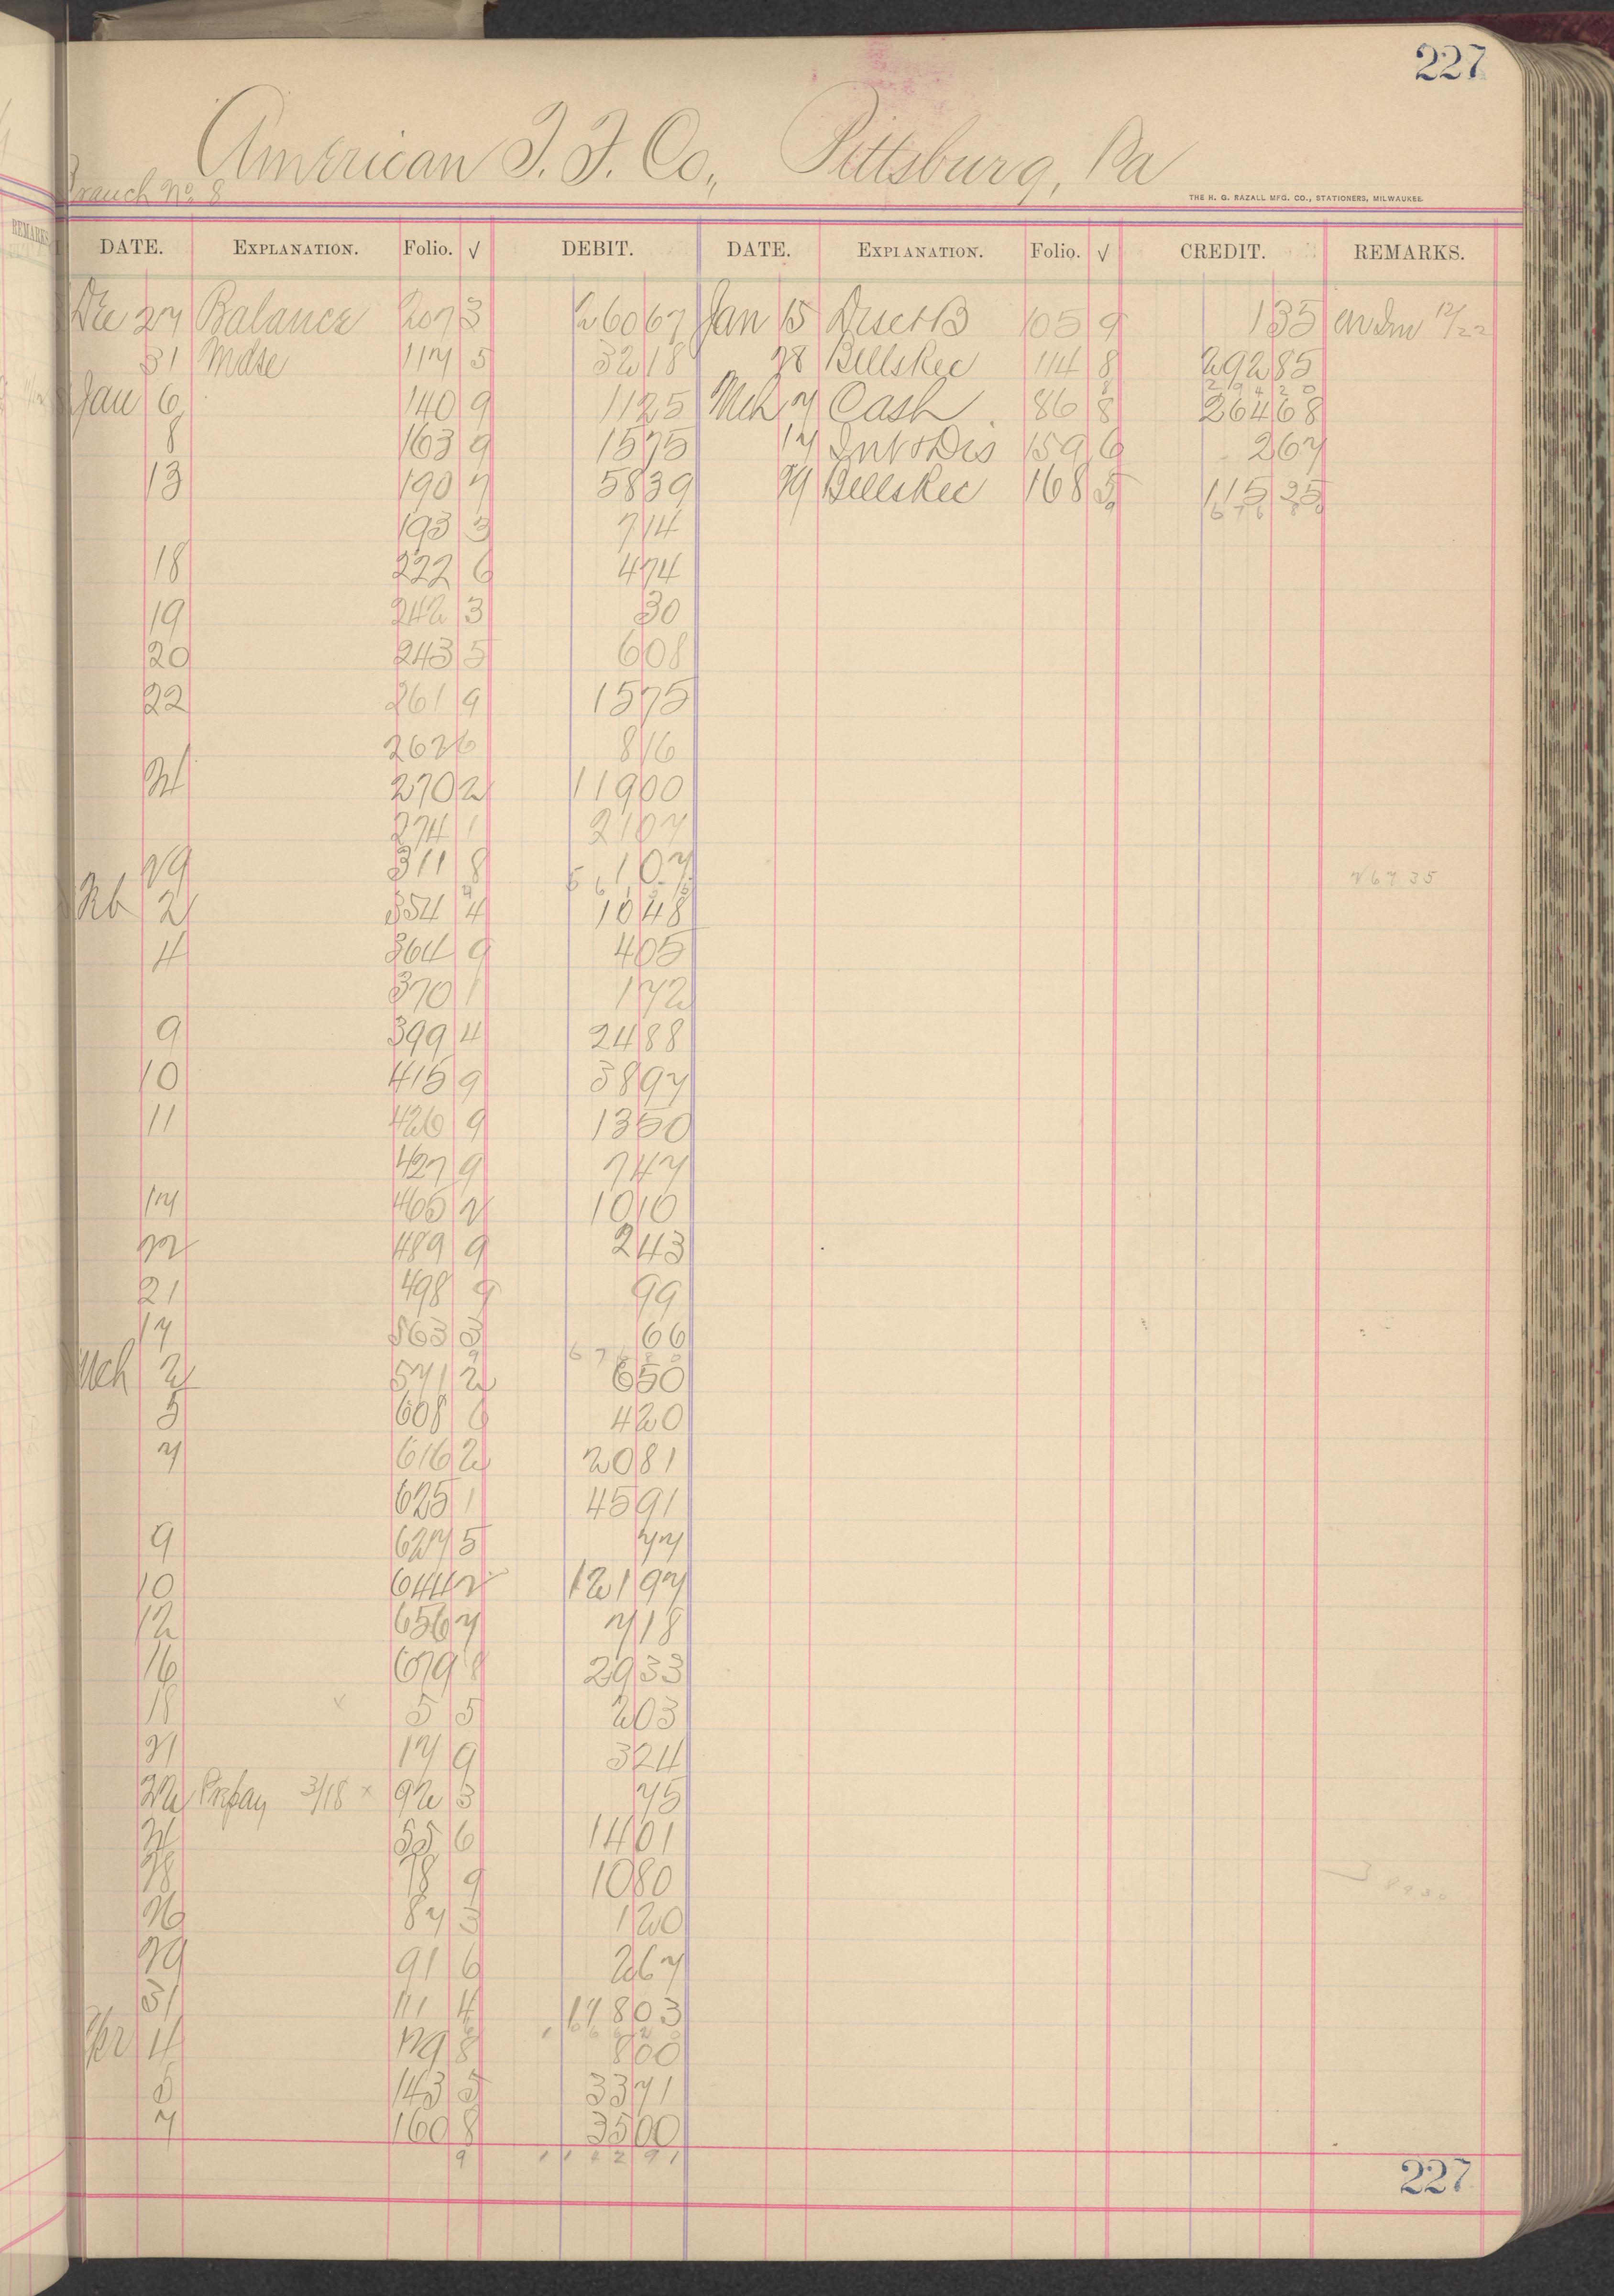 227
American T. F. Co., Pittsburg, Pa
Branch No. 8
THE H. G. RAZALL MFG. CO., STATIONERS, MILWAUKEE.
DATE. EXPLANATION. Folio. √ DEBIT. DATE. EXPLANATION. Folio. √ CREDIT. REMARKS.
Dec 27 Balance 207 3 260 67 Jan 15 Disct+B 105 9 1 35 12/22
31 Mdse 117 5 32 18 28 Bills Rec 114 8 292 85
Jan 6 140 9 11 25 Mch 7 Cash 86 8 264 68
8 163 9 15 75 17 Int & Dis 159 6 2 67
13 190 7 58 39 29 Bills Rec 168 5 115 25
193 3 7 14 676 80
18 222 6 4 74
19 242 3 30
20 243 5 6 08
22 261 9 15 75
262 6 8 16
24 270 2 119 00
274 1 21 07
29 311 8 1 07
267 35
Feb 2 354 4 10 48
4 364 9 4 05
370 1 1 72
9 399 4 24 88
10 415 9 38 97
11 426 9 13 50
427 9 7 47
17 465 2 10 10
22 489 9 2 43
21 498 9 99
17 563 3 66
676 80
Mch 2 571 2 6 50
5 608 6 4 20
7 616 2 20 81
625 1 45 91
9 627 5 77
10 644 2 121 97
12 656 7 7 18
16 679 8 29 33
18 x 5 5 2 03
21 17 9 3 24
22 Prepay 3/18 x 92 3 75
24 55 6 14 01
28 78 9 10 80
26 87 3 1 20
29 91 6 2 67
31 111 4 178 03
Apr 4 129 8 8 00
5 143 5 33 71
7 160 8 35 00
9
227